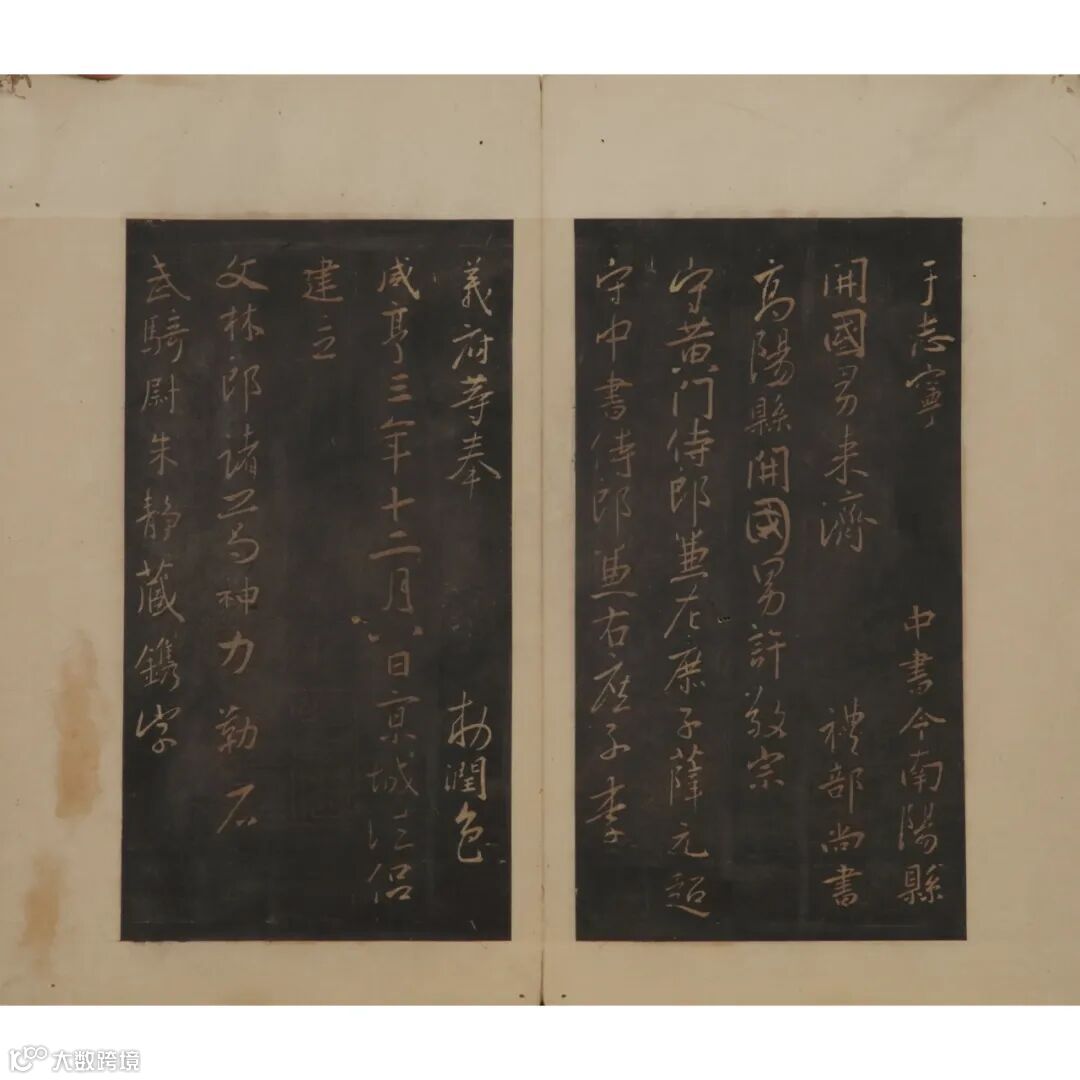 于志寧　中書令南陽縣
開國男来濟　禮部尚書
高陽縣開國男許敬宗
守黄门侍郎兼左庶子薛元超
守中書侍郎兼右庶子李
義府等奉　敕潤色
咸亨三年十二月八日京城法侣
建立
文林郎諸葛神力勒石
武騎尉朱静藏鐫字
大数跨境